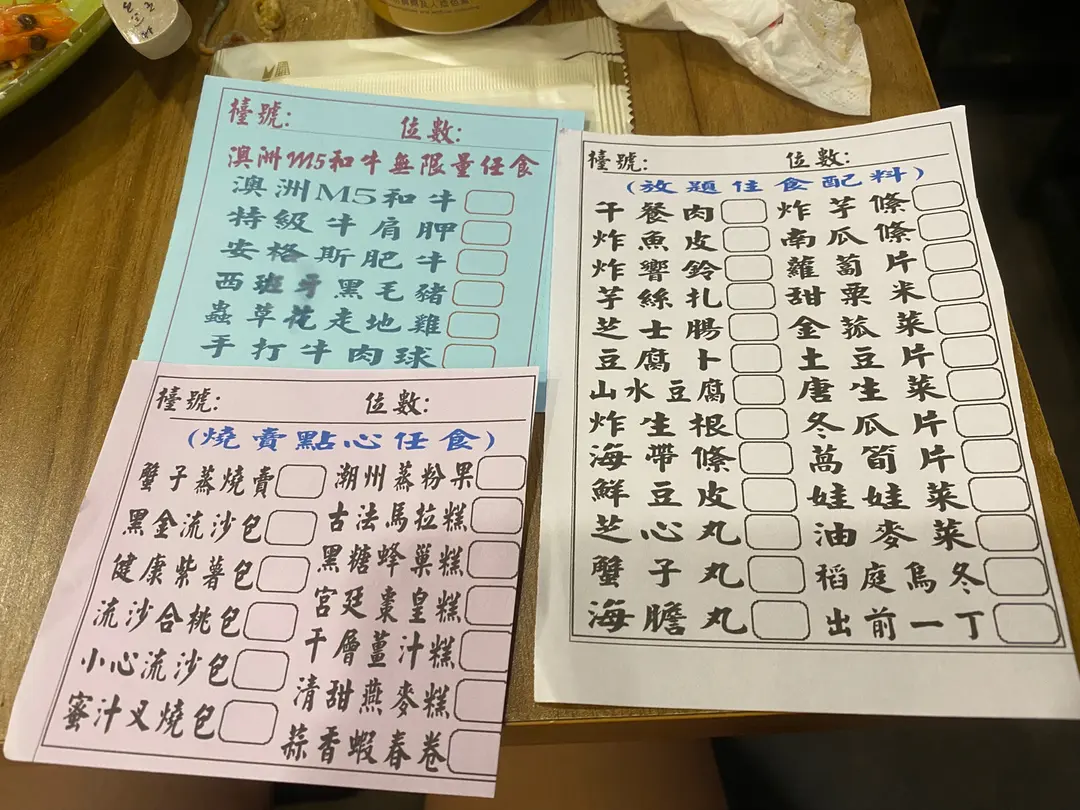 檯號: 位數:
澳洲M5和牛無限量任食
澳洲M5和牛
特級牛肩胛
安格斯肥牛
西班牙黑毛豬
蟲草花走地雞
手打牛肉球
檯號: 位數:
(燒賣點心任食)
蟹子蒸燒賣 潮州蒸粉果
黑金流沙包 古法馬拉糕
健康紫薯包 黑糖蜂巢糕
流沙合桃包 宮廷棗皇糕
小心流沙包 千層薑汁糕
蜜汁叉燒包 清甜燕麥糕
蒜香蝦春卷
檯號: 位數:
(放題任食配料)
干餐肉 炸芋條
炸魚皮 南瓜條
炸響鈴 蘿蔔片
芋絲扎 甜粟米
芝士腸 金菰菜
豆腐卜 土豆片
山水豆腐 唐生菜
炸生根 冬瓜片
海帶條 萵筍片
鮮豆皮 娃娃菜
芝心丸 油麥菜
蟹子丸 稻庭烏冬
海膽丸 出前一丁